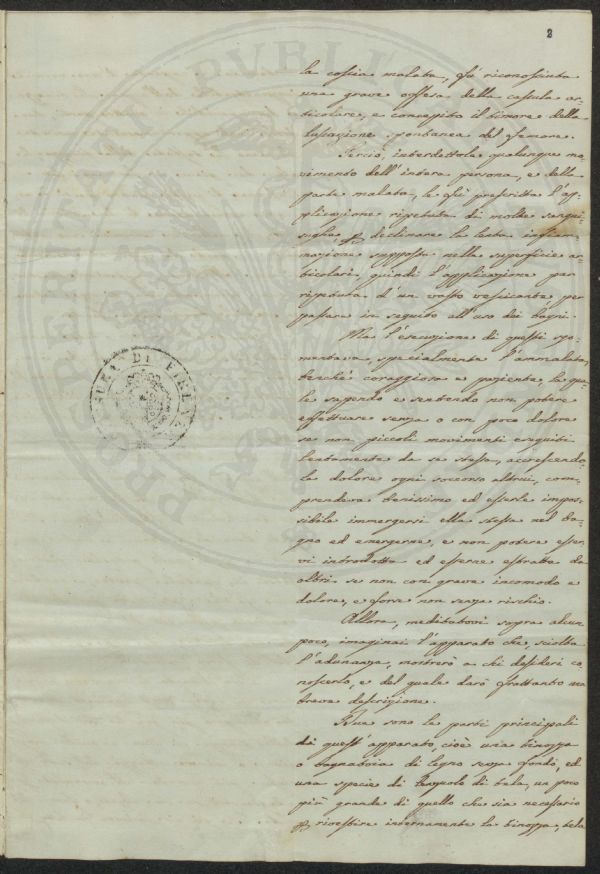 2
la coscia malata, fù riconosciuta
una grave offesa della capsula ar-
ticolare, e concepito il timore della
lussazione spontanea del femore.
Perciò, interdettole qualunque mo-
vimento dell'intera persona, e della
parte malata, le fù prescritta l'ap-
plicazione ripetuta di molte sangui-
sughe p declinare la lenta infiam-
mazione supposta nelle superficie ar-
ticolari, quindi l'applicazione pur
ripetuta d'un vasto vessicante per
passare in seguito all'uso dei bagni.
Ma l'esecuzione di questi sgo-
mentava, specialmente l'ammalata,
benchè coraggiosa e paziente, la qua-
le sapendo e sentendo non potere
effettuare senza o con poco dolore
se non piccoli movimenti eseguiti
lentamente da se stessa, accrescendo-
le dolore ogni soccorso altrui, com-
prendeva benissimo ed esserle impos-
sibile immergersi ella stessa nel ba-
gno ed emergerne, e non potere esser-
vi introdotta ed esserne estratta da
altri se non con grave incomodo e
dolore, e forse non senza rischio.
Allora, meditatovi sopra alcun
poco, imaginai l'apparato che, sciolta
l'adunanza, mostrerò a chi desideri co-
noscerlo, e del quale darò frattanto una
breve descrizione.
Due sono le parti principali
di quest'apparato, cioè una tinozza
o bagnatoia di legno senza fondo, ed
una specie di di tela, un poco
più grande di quello che sia necessario
p rivestire internamente la tinozza, tela
PROSPERITATI PUBLICAE
DI FIRENZE